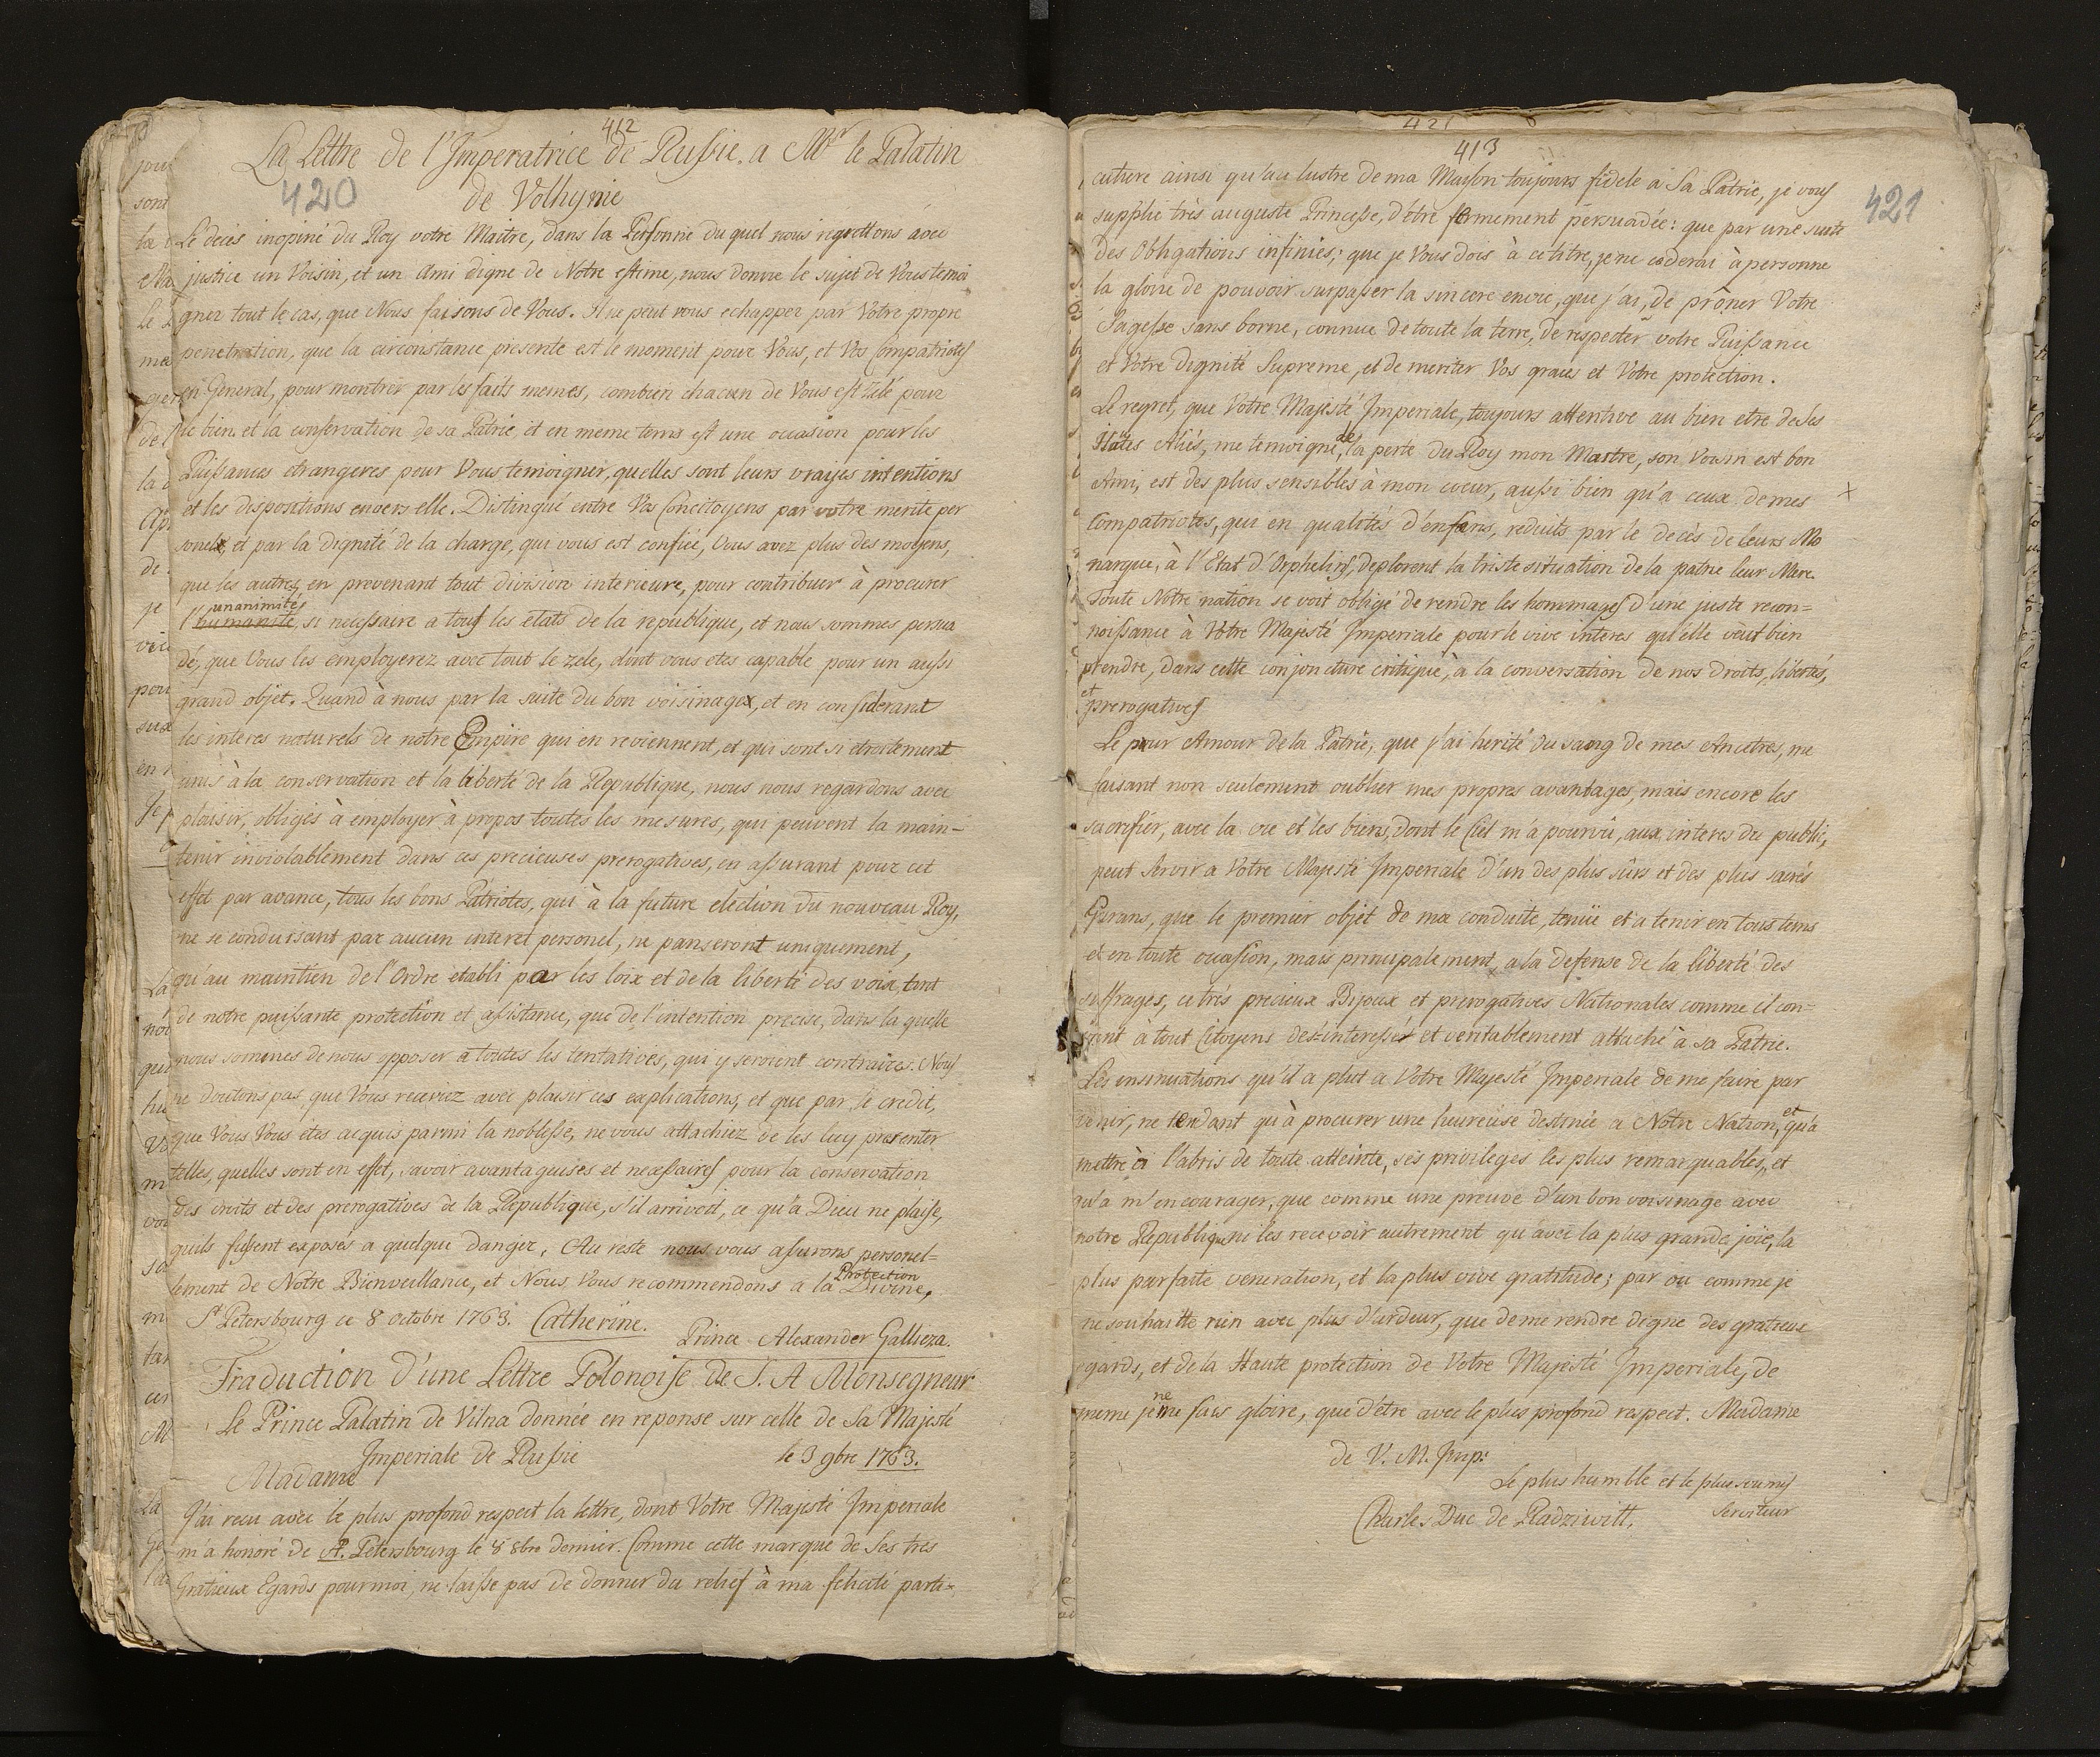 412
La Lettre de l'Imperatrice de Russie. a Mr le Palatin
420
de Volhynie
Le deces inopiné du Roy votre Maitre, dans la Personne du quel nous regrettons avec
justice un Voisin, et un Ami digne de Notre estime, nous donne le sujet de Vous temoi
gner tout le cas, que Nous faisons de Vous. Il ne peut vous echapper par Votre propre
penetration, que la circonstance presente est le moment pour Vous, et Vos Compatriotes
en General, pour montrer par les faits memes, combien chacun de Vous est zelé pour
le bien et la conservation de sa Patrie, et en meme tems est une occasion pour les
Puissances etrangeres pour Vous temoigner, quelles sont leurs vrayes intentions
et les dispositions envers elle. Distingué entre Vos Concitoyens par votre merite per
sonel, et par la dignité de la charge, qui vous est confiée, Vous avez plus des moyens,
que les autres, en prevenant tout division interieure, pour contribuer à procurer
unanimité
l'humanité, si necessaire a tous les etats de la republique, et nous sommes persua
dé, que Vous les employerez avec tout le zele, dont vous etes capable pour un aussi
grand objet. Quand à nous par la suite du bon voisinage, et en considerant
les interes naturels de notre Empire qui en reviennent, et qui sont si etroitement
unis à la conservation et la liberté de la Republique, nous nous regardons avec
plaisir, obligés à employer à propos toutes les mesures, qui peuvent la main-
tenir inviolablement dans ces precieuses prerogatives, en assurant pour cet
effet par avance, tous les bons Patriotes, qui à la future election du nouveau Roy,
ne se conduisant par aucun interet personel, ne panseront uniquement,
qu'au maintien de l'Ordre etabli par les loix et de la liberté des voix, tant
de notre puissante protection et assistance, que de l'intention precise, dans la quelle
nous sommes de nous opposer a toutes les tentatives, qui y seroient contraires. Nous
ne doutons pas, que Vous receviez avec plaisir ces explications, et que par le credit,
que Vous Vous etes acquis parmi la noblesse, ne vous attachiez de les luy presenter
telles, quelles sont en effet, savoir avantageuses et necessaires pour la conservation
des droits et des prerogatives de la Republique, s'il arrivoit, ce qu'à Dieu ne plaise,
quils fussent exposés a quelque danger. Au reste nous vous assurons personel-
Protection
lement de Notre Bienveillance, et Nous Vous recommendons a la Divine.
St Petersbourg ce 8 octobre 1763. Catherine.
Prince Alexander Gallieza.
Traduction d'une Lettre Polonoise de S. A Monsegneur
Le Prince Palatin de Vilna donnée en reponse sur celle de Sa Majesté
Imperiale de Russie le 3 9bre 1763.
Madame
J'ai recu avec le plus profond respect la lettre, dont Votre Majesté Imperiale
m'a honoré de St. Petersbourg le 8 8bre dernier. Comme cette marque de Ses tres
Gratieux Egards pour moi, ne laisse pas de donner du relief à ma felicité parti-
421
413
421
culiere ainsi qu'au lustre de ma Maison toujours fidele a Sa Patrie, je vous
supplie très auguste Princesse, d'être fermement persuadée: que par une suite
des Obligations infinies; que je Vous dois à ce titre, je ne cederai à personne
la gloire de pouvoir surpasser la sincere envie, que j'ai, de prôner Votre
Sagesse sans borne, connue de toute la terre, de respecter votre Puissance
et Votre Dignité Supreme, et de meriter Vos graces et Votre protection.
Le regret, que Votre Majesté Imperiale, toujours attentive au bien etre de Ses
de
Etates Aliés, me temoigne, la perte du Roy mon Maitre, son Voisin est bon
Ami, est des plus sensibles à mon coeur, aussi bien qu'a ceux de mes +
Compatriotes, qui en qualités d'enfans, reduits par le decès de leurs Mo
narque, à l'Etat d'Orphelins, deplorent la triste situation de la patrie leur Mere.
Toute Notre nation se voit obligé de rendre les hommages d'une juste recon=
noissance à Votre Majesté Imperiale pour le vive interes qu'elle veut bien
prendre, dans cette conjoncture critique, à la conversation de nos droits, libertés,
et
prerogatives
Le pur Amour de la Patrie, que j'ai herité du sang de mes Ancetres, me
faisant non seulement oublier mes propres avantages, mais encore les
sacrifier, avec la vie et les biens, dont le Ciel m'a pourvû, aux interes du public,
peut servir a Votre Majesté Imperiale d'un des plus sûrs et des plus sacrés
Garans, que le premier objet de ma conduite, tenüe et a tenir en tous tems
et en toute occasion, mais principalement, a la defense de la liberté des
suffrages, ce très precieux Bijoux et prerogatives Nationales comme il con=
vient à tout Citoyens desinteressé et veritablement attaché à sa Patrie.
Les insinuations qu'il a plut a Votre Majesté Imperiale de me faire par
et
venir, ne tendant qu'à procurer une heureuse destinée a Notre Nation, qu'à
mettre à l'abris de toute atteinte, ses privileges les plus remarquables, et
qu'a m'encourager, que comme une preuve d'un bon voisinage avec
notre Republique ni les recevoir autrement qu'avec la plus grande joie, la
plus parfaite veneration, et la plus vive gratitude; par ou comme je
ne souhaitte rien avec plus d'ardeur, que de me rendre digne des gratieux
egards, et de la Haute protection de Votre Majesté Imperiale, de
ne
meme je me fais gloire, que d'être avec le plus profond respect. Madame
de V. M. Imp:
Le plus humble et le plus soumis
Charles Duc de Radziwill. Serviteur